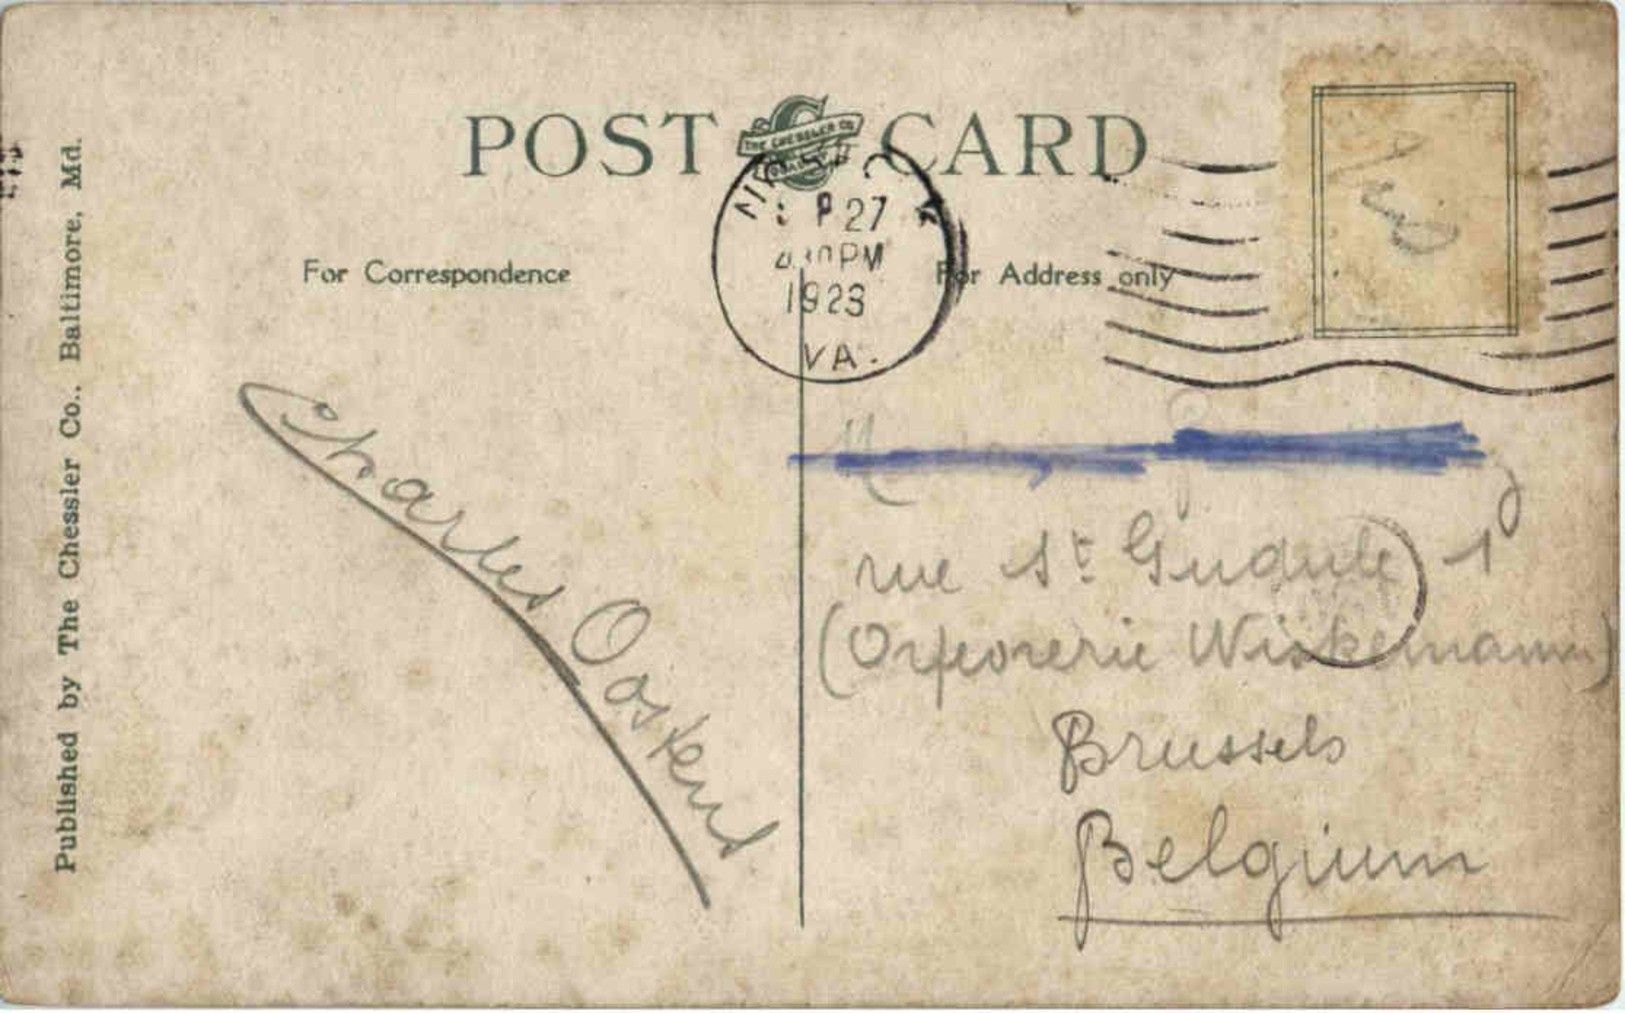 POST CARD
THE CHESSLER CO
P 27
PM
1923
VA.
For Correspondence
For Address only
Published by The Chessler Co., Baltimore, Md.
Charles Oostend
rue St Gudule 1
(Orfeorerie Wiskemann)
Brussels
Belgium